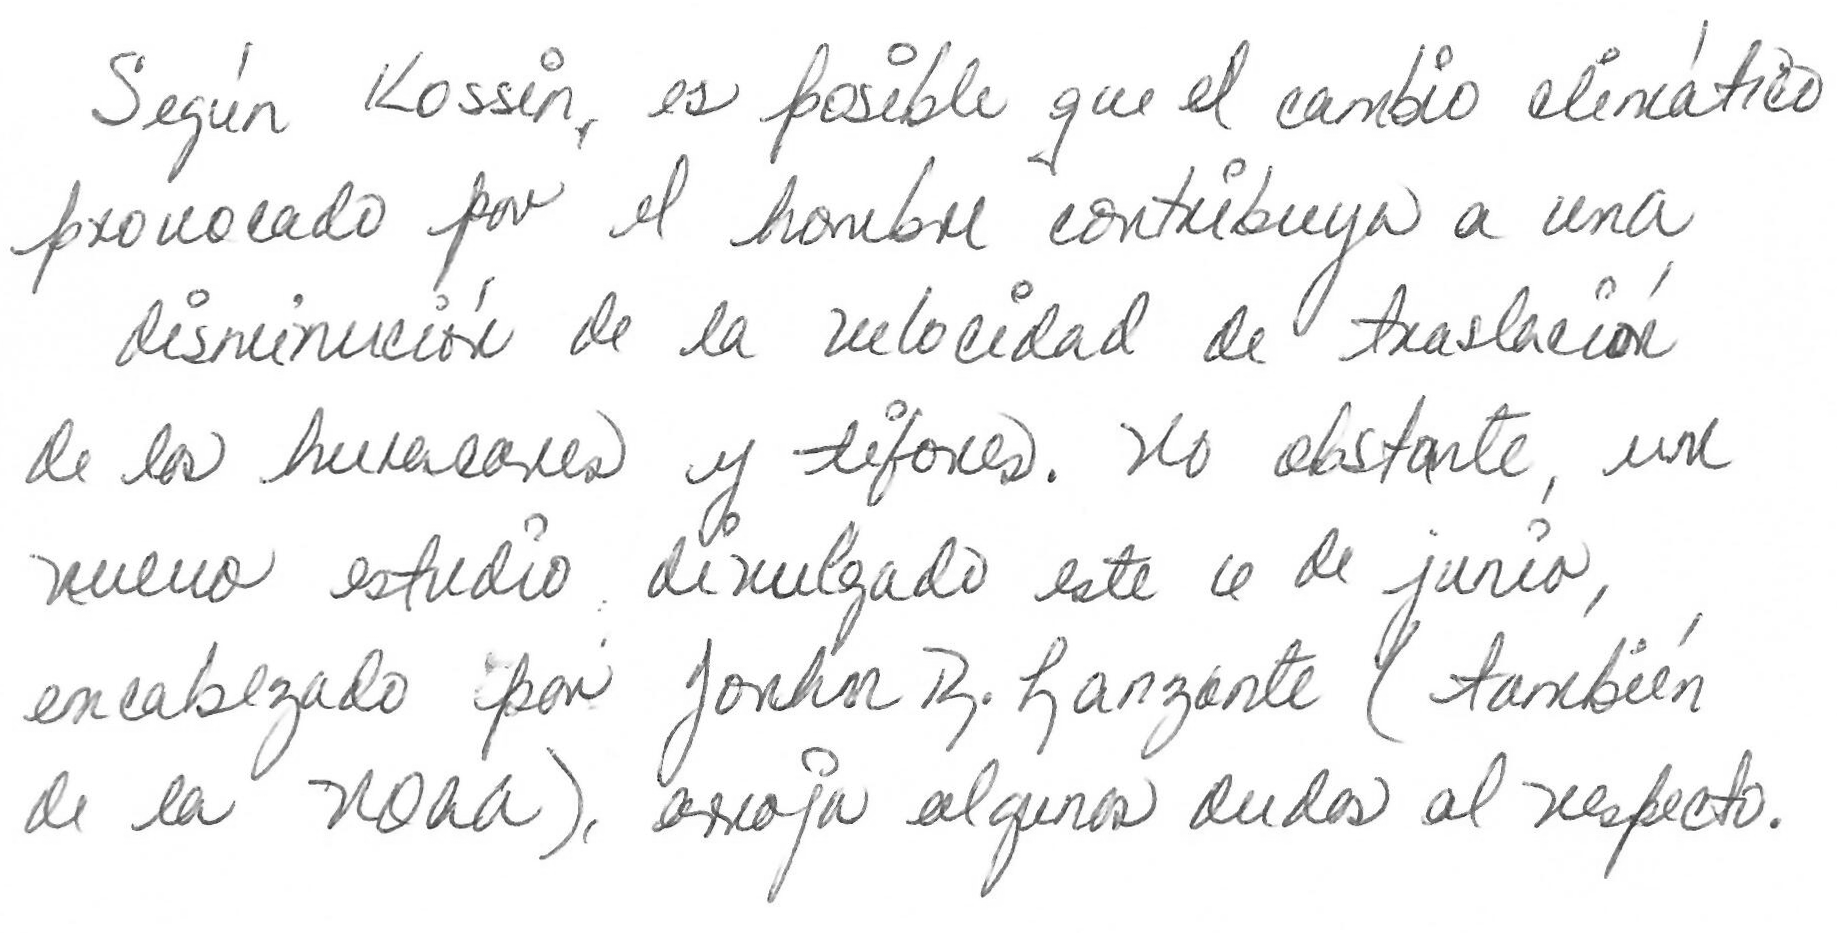 Según Kossin, es posible que el cambio climático
provocado por el hombre contribuya a una
disminución de la velocidad de traslación
de los huracanes y tifones. No obstante, un
nuevo estudio divulgado este 6 de junio,
encabezado por John R. Lanzante (también
de la NOAA), arroja algunas dudas al respecto.